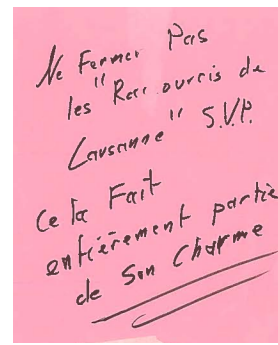 Ne Fermer Pas
les "Raccourcis de
Lausanne" S.V.P.
Cela Fait
entièrement partie
de Son Charme